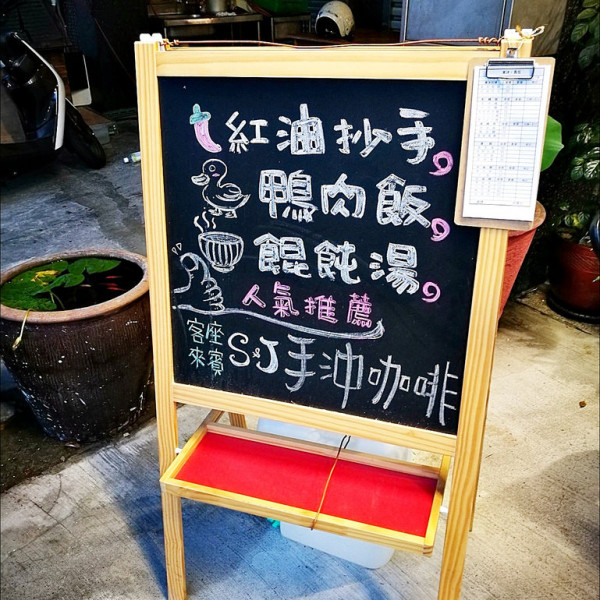 紅油抄手
鴨肉飯
餛飩湯
人氣推薦
客座
來賓
S&J手沖咖啡